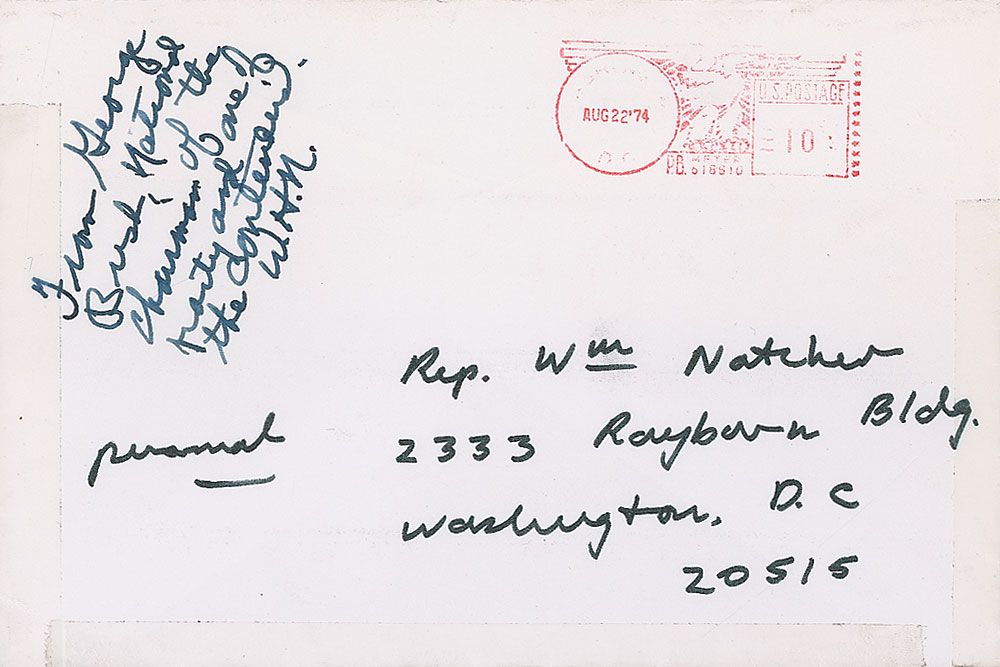 From George
Bush, National
chairman of the
party and one of
the contenders.
W.H.N.
AUG 22 '74
D.C.
U.S. POSTAGE
10
P.B. METER
Rep. Wm Natcher
2333 Rayburn Bldg.
Washington, D.C
20515
personal